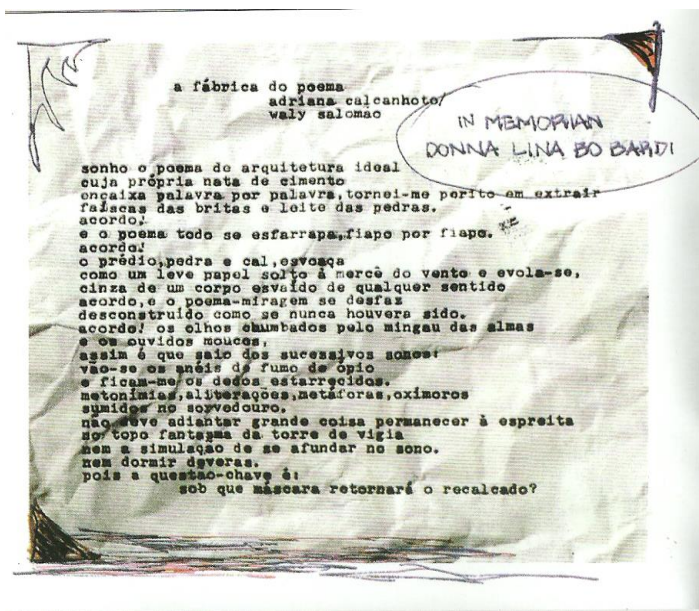 a fábrica do poema
adriana calcanhoto/
waly salomão
IN MEMORIAN
DONNA LINA BO BARDI
sonho o poema de arquitetura ideal
cuja própria nata de cimento
encaixa palavra por palavra,tornei-me perito em extrair
faíscas das britas e leite das pedras.
acordo!
e o poema todo se esfarrapa,fiapo por fiapo.
acordo!
o prédio,pedra e cal,esvoaça
como um leve papel solto à mercê do vento e evola-se,
cinza de um corpo esvaído de qualquer sentido
acordo,e o poema-miragem se desfaz
desconstruído como se nunca houvera sido.
acordo! os olhos chumbados pelo mingau das almas
e os ouvidos moucos,
assim é que saio dos sucessivos sonos:
vão-se os anéis de fumo de ópio
e ficam-me os dedos estarrecidos.
metonímias,aliterações,metáforas,oxímoros
sumidos no sorvedouro.
não deve adiantar grande coisa permanecer à espreita
no topo fantasma da torre de vigia
nem a simulação de se afundar no sono.
nem dormir deveras.
pois a questão-chave é:
sob que máscara retornará o recalcado?